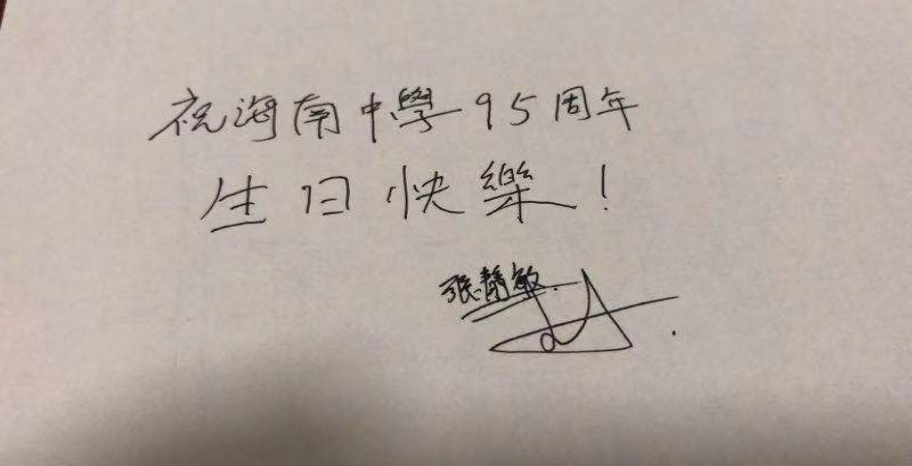 祝海南中學95周年
生日快樂!
張靜敏